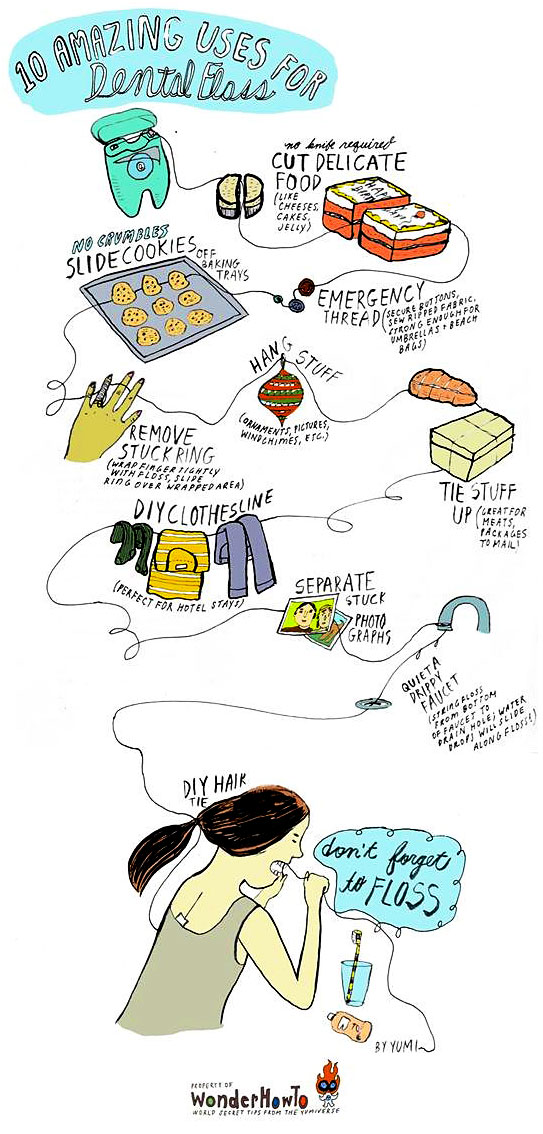 10 AMAZING USES FOR
Dental Floss
no knife required
CUT DELICATE
FOOD
(LIKE
CHEESES,
CAKES,
JELLY)
NO CRUMBLES
SLIDE COOKIES OFF
BAKING
TRAYS
EMERGENCY
THREAD (SECURE BUTTONS,
SEW RIPPED FABRIC,
STRONG ENOUGH FOR
UMBRELLAS + BEACH
BAGS)
HANG STUFF
(ORNAMENTS, PICTURES,
WINDCHIMES, ETC.)
REMOVE
STUCK RING
(WRAP FINGER TIGHTLY
WITH FLOSS, SLIDE
RING OVER WRAPPED AREA)
TIE STUFF
UP (GREAT FOR
MEATS,
PACKAGES
TO MAIL)
DIY CLOTHESLINE
(PERFECT FOR HOTEL STAYS)
SEPARATE
STUCK
PHOTO
GRAPHS
QUIET A
DRIPPY
FAUCET
(STRING FLOSS
FROM BOTTOM
OF FAUCET TO
DRAIN HOLE; WATER
DROPS WILL SLIDE
ALONG FLOSS!)
DIY HAIR
TIE
don't forget
to FLOSS
BY YUMI
PROPERTY OF
WonderHowTo
WORLD SECRET TIPS FROM THE YUMIVERSE